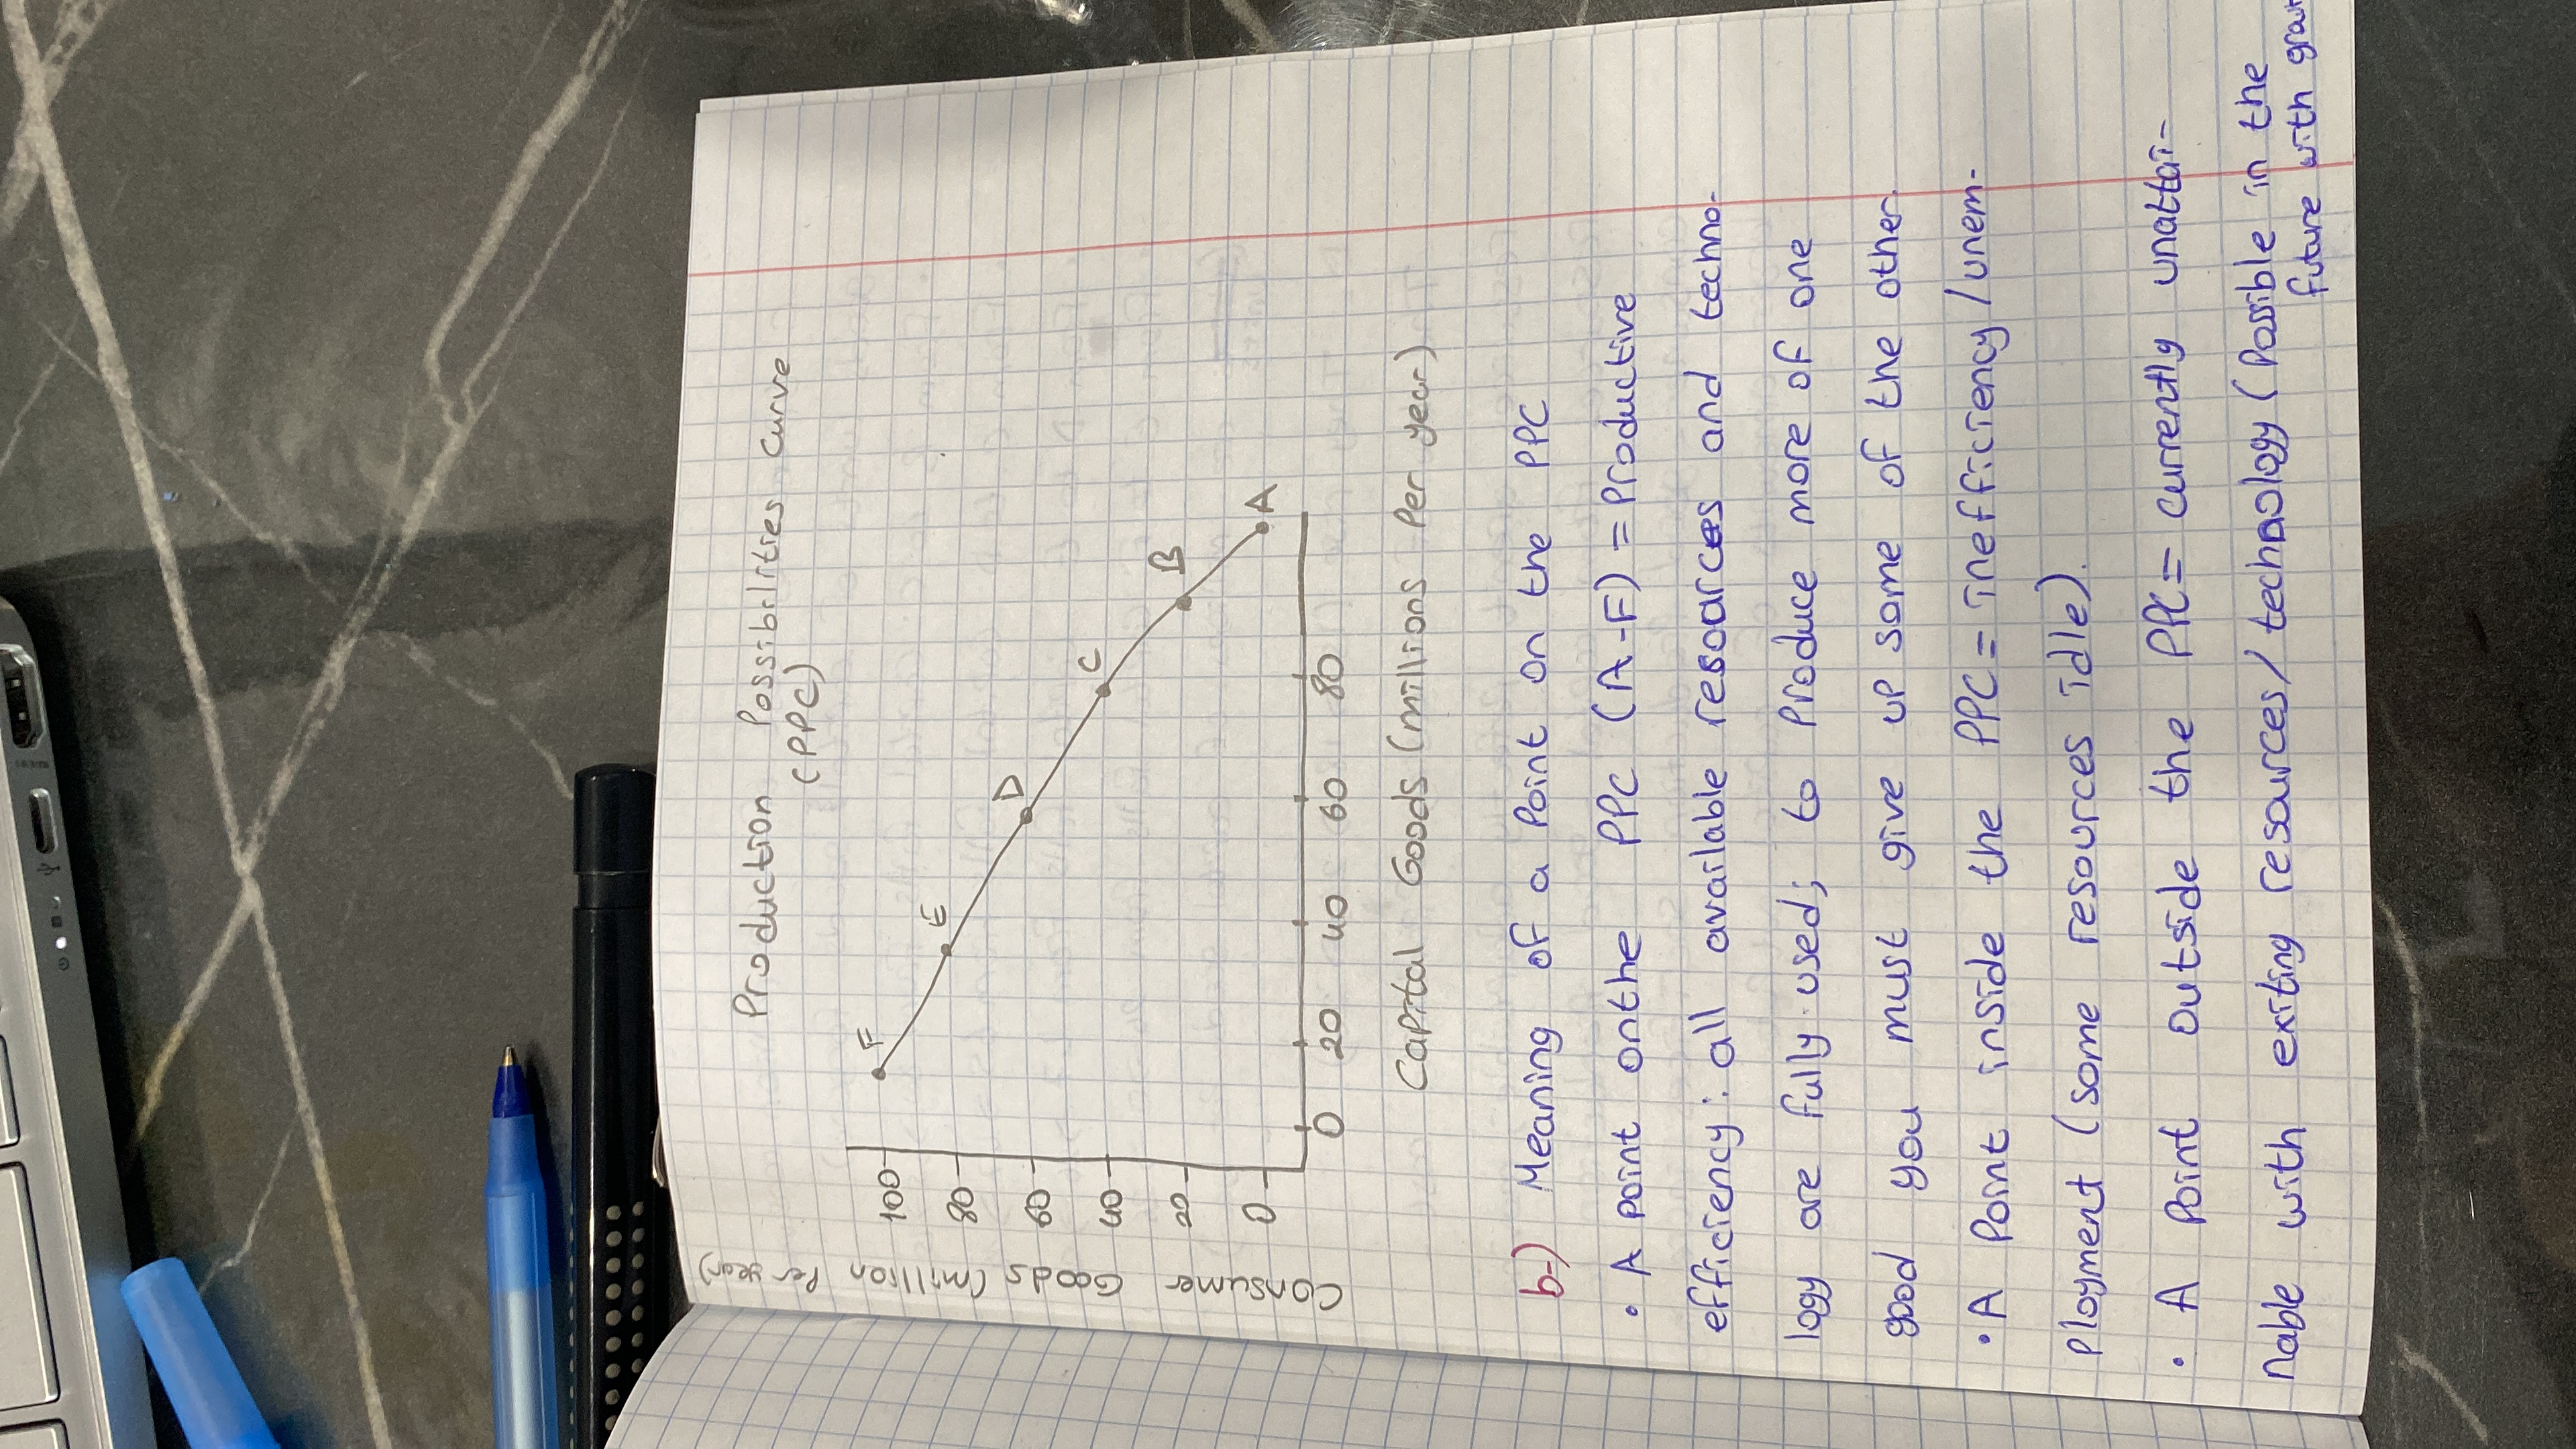 Production Possibilities Curve
(PPC)
Consumer Goods (million Per year)
100
80
60
40
20
0
F
E
D
C
B
A
0 20 40 60 80
Capital Goods (millions Per year)
b-) Meaning of a Point on the PPC
• A point onthe PPC (A-F) = Productive
efficiency: all available resources and techno-
logy are fully used; to Produce more of one
good you must give up some of the other.
• A Point inside the PPC = inefficiency/unem-
Ployment (some resources idle).
• A Point outside the PPC = currently unattai-
nable with exiting resources/technology (Possible in the
future with